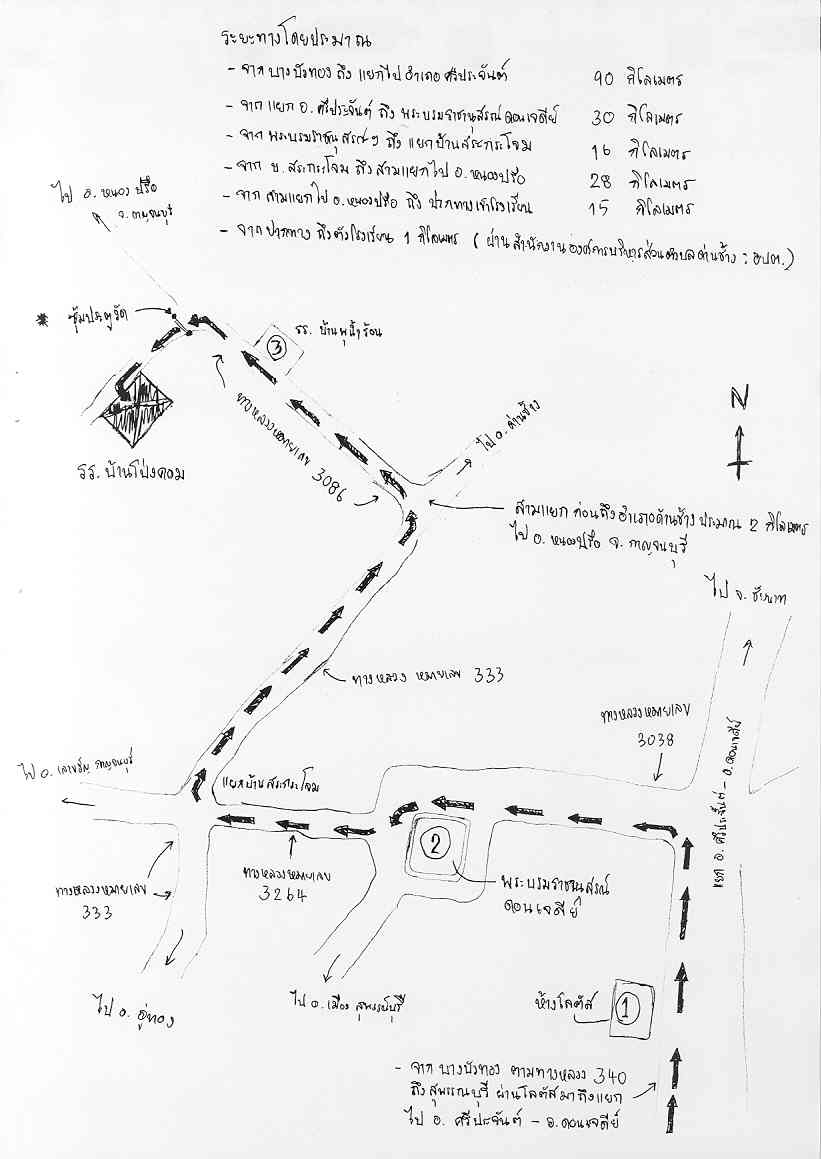 ระยะทางโดยประมาณ
- จาก บางบัวทอง ถึง แยกไป อำเภอ ศรีประจันต์ 90 กิโลเมตร
- จาก แยก อ. ศรีประจันต์ ถึง พระบรมราชานุสรณ์ ดอนเจดีย์ 30 กิโลเมตร
- จาก พระบรมราชานุสรณ์ฯ ถึง แยกบ้านสระกระโจม 16 กิโลเมตร
- จาก บ. สระกระโจม ถึง สามแยกไป อ. หนองปรือ 28 กิโลเมตร
- จาก สามแยกไป อ. หนองปรือ ถึง ปากทางเข้าโรงเรียน 15 กิโลเมตร
- จากปากทาง ถึงตัวโรงเรียน 1 กิโลเมตร ( ผ่านสำนักงานองค์การบริหารส่วนตำบลด่านช้าง : อบต. )
ไป อ. หนองปรือ
จ. กาญจนบุรี
* ซุ้มประตูวัด
3
รร. บ้านพุน้ำร้อน
รร. บ้านโป่งคอม
ทางหลวงหมายเลข 3086
ไป อ. ด่านช้าง
N
สามแยก ก่อนถึงอำเภอด่านช้าง ประมาณ 2 กิโลเมตร
ไป อ. หนองปรือ จ. กาญจนบุรี
ไป จ. ชัยนาท
ทางหลวง หมายเลข 333
ทางหลวงหมายเลข
3038
แยก อ. ศรีประจันต์ - อ. ดอนเจดีย์
ไป อ. เลาขวัญ กาญจนบุรี
แยกบ้านสระกระโจม
2
พระบรมราชานุสรณ์
ดอนเจดีย์
ทางหลวงหมายเลข
3264
ทางหลวงหมายเลข
333
ไป อ. อู่ทอง
ไป อ. เมือง สุพรรณบุรี
ห้างโลตัส
1
- จาก บางบัวทอง ตามทางหลวง 340
ถึงสุพรรณบุรี ผ่านโลตัสมาถึงแยก
ไป อ. ศรีประจันต์ - อ. ดอนเจดีย์